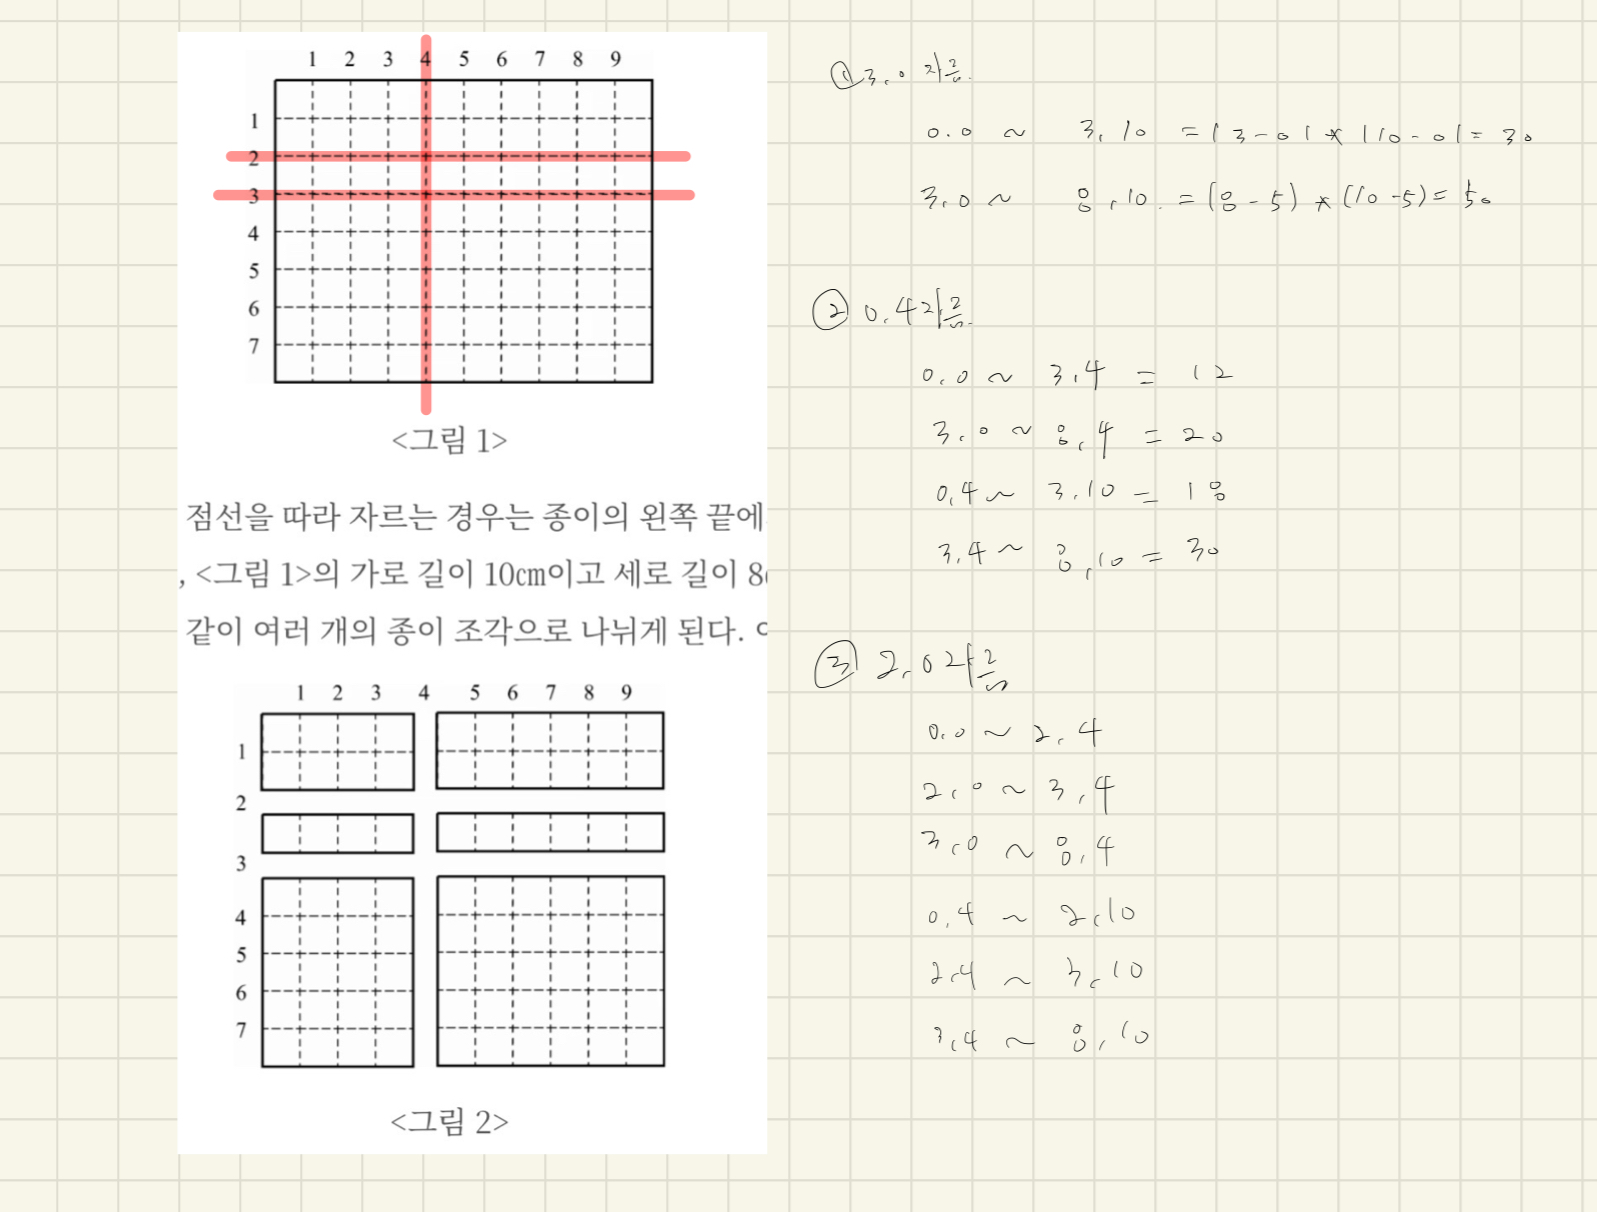 1 2 3 4 5 6 7 8 9
1
2
3
4
5
6
7
<그림 1>
점선을 따라 자르는 경우는 종이의 왼쪽 끝에
, <그림 1>의 가로 길이 10cm이고 세로 길이 8
같이 여러 개의 종이 조각으로 나뉘게 된다.
1 2 3 4 5 6 7 8 9
1
2
3
4
5
6
7
<그림 2>
① 3,0 자름.
0.0 ~ 3,10 = |3-0| * |10-0| = 30
3,0 ~ 8,10. = (8-5) * (10-5) = 50
② 0,4 자름.
0,0 ~ 3,4 = 12
3,0 ~ 8,4 = 20
0,4 ~ 3,10 = 18
3,4 ~ 8,10 = 30
③ 2,0 자름
0,0 ~ 2,4
2,0 ~ 3,4
3,0 ~ 8,4
0,4 ~ 2,10
2,4 ~ 3,10
3,4 ~ 8,10